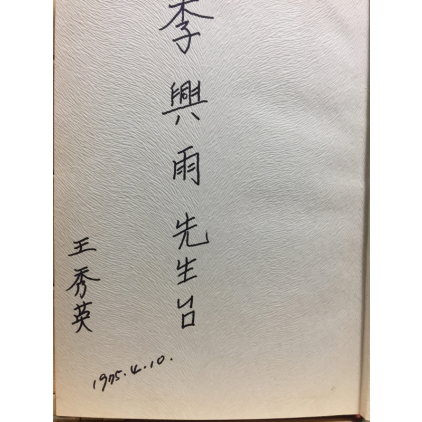 李興雨 先生님
王秀英
1975.4.10.